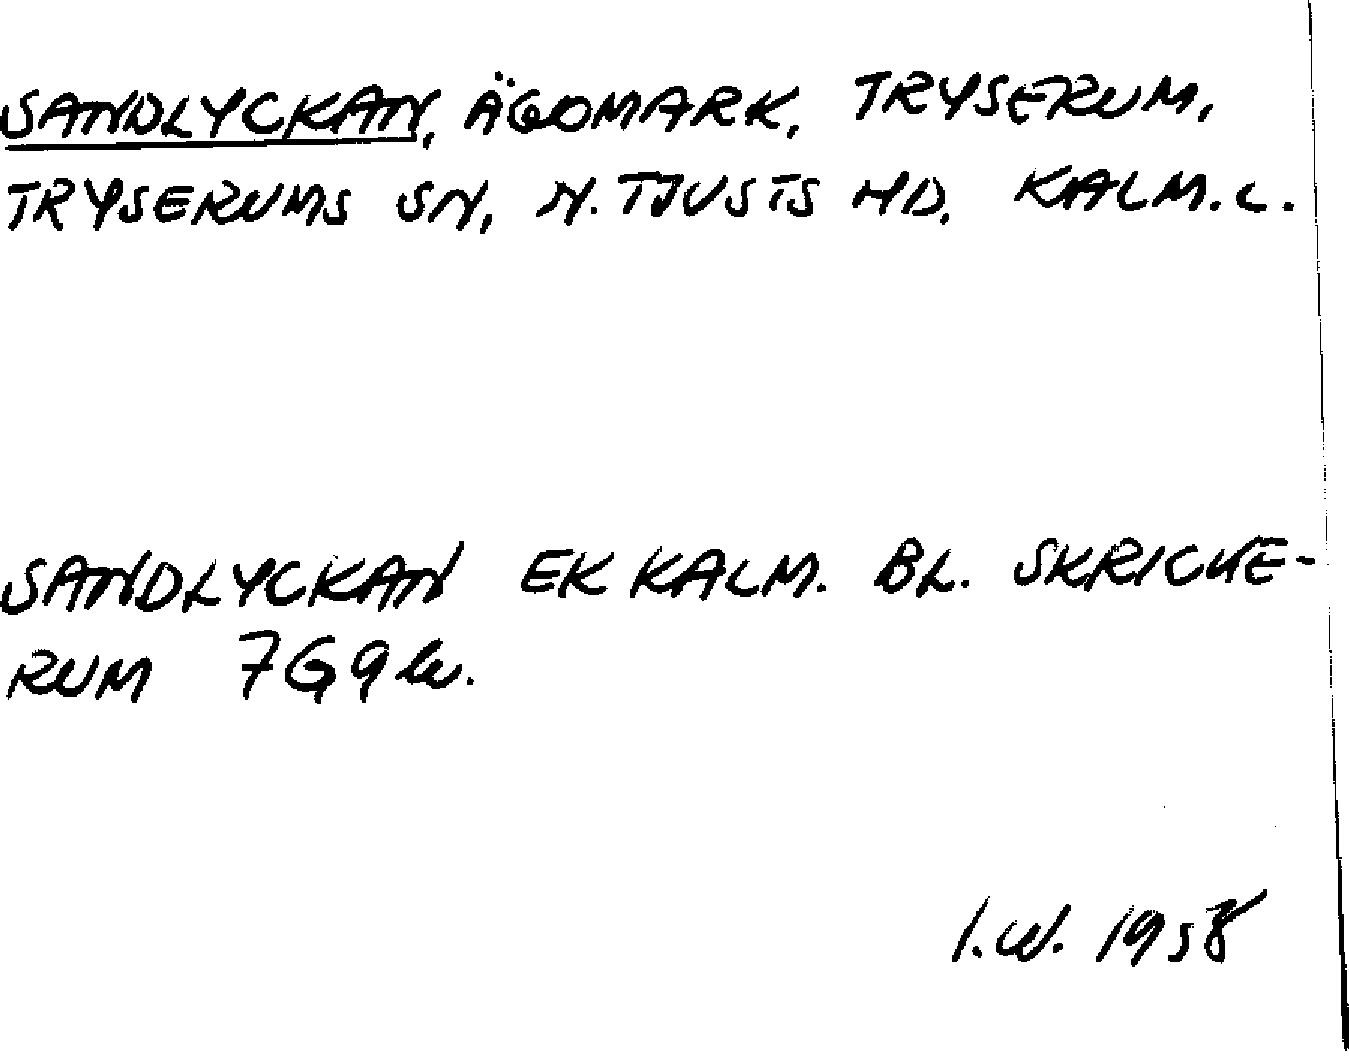 SANDLYCKAN, ÄGOMARK, TRYSERUM,
TRYSERUMS SN, N. TJUSTS HD, KALM. L.
SANDLYCKAN EK KALM. BL. SKRICKE-
RUM 7G9
I.W. 1958